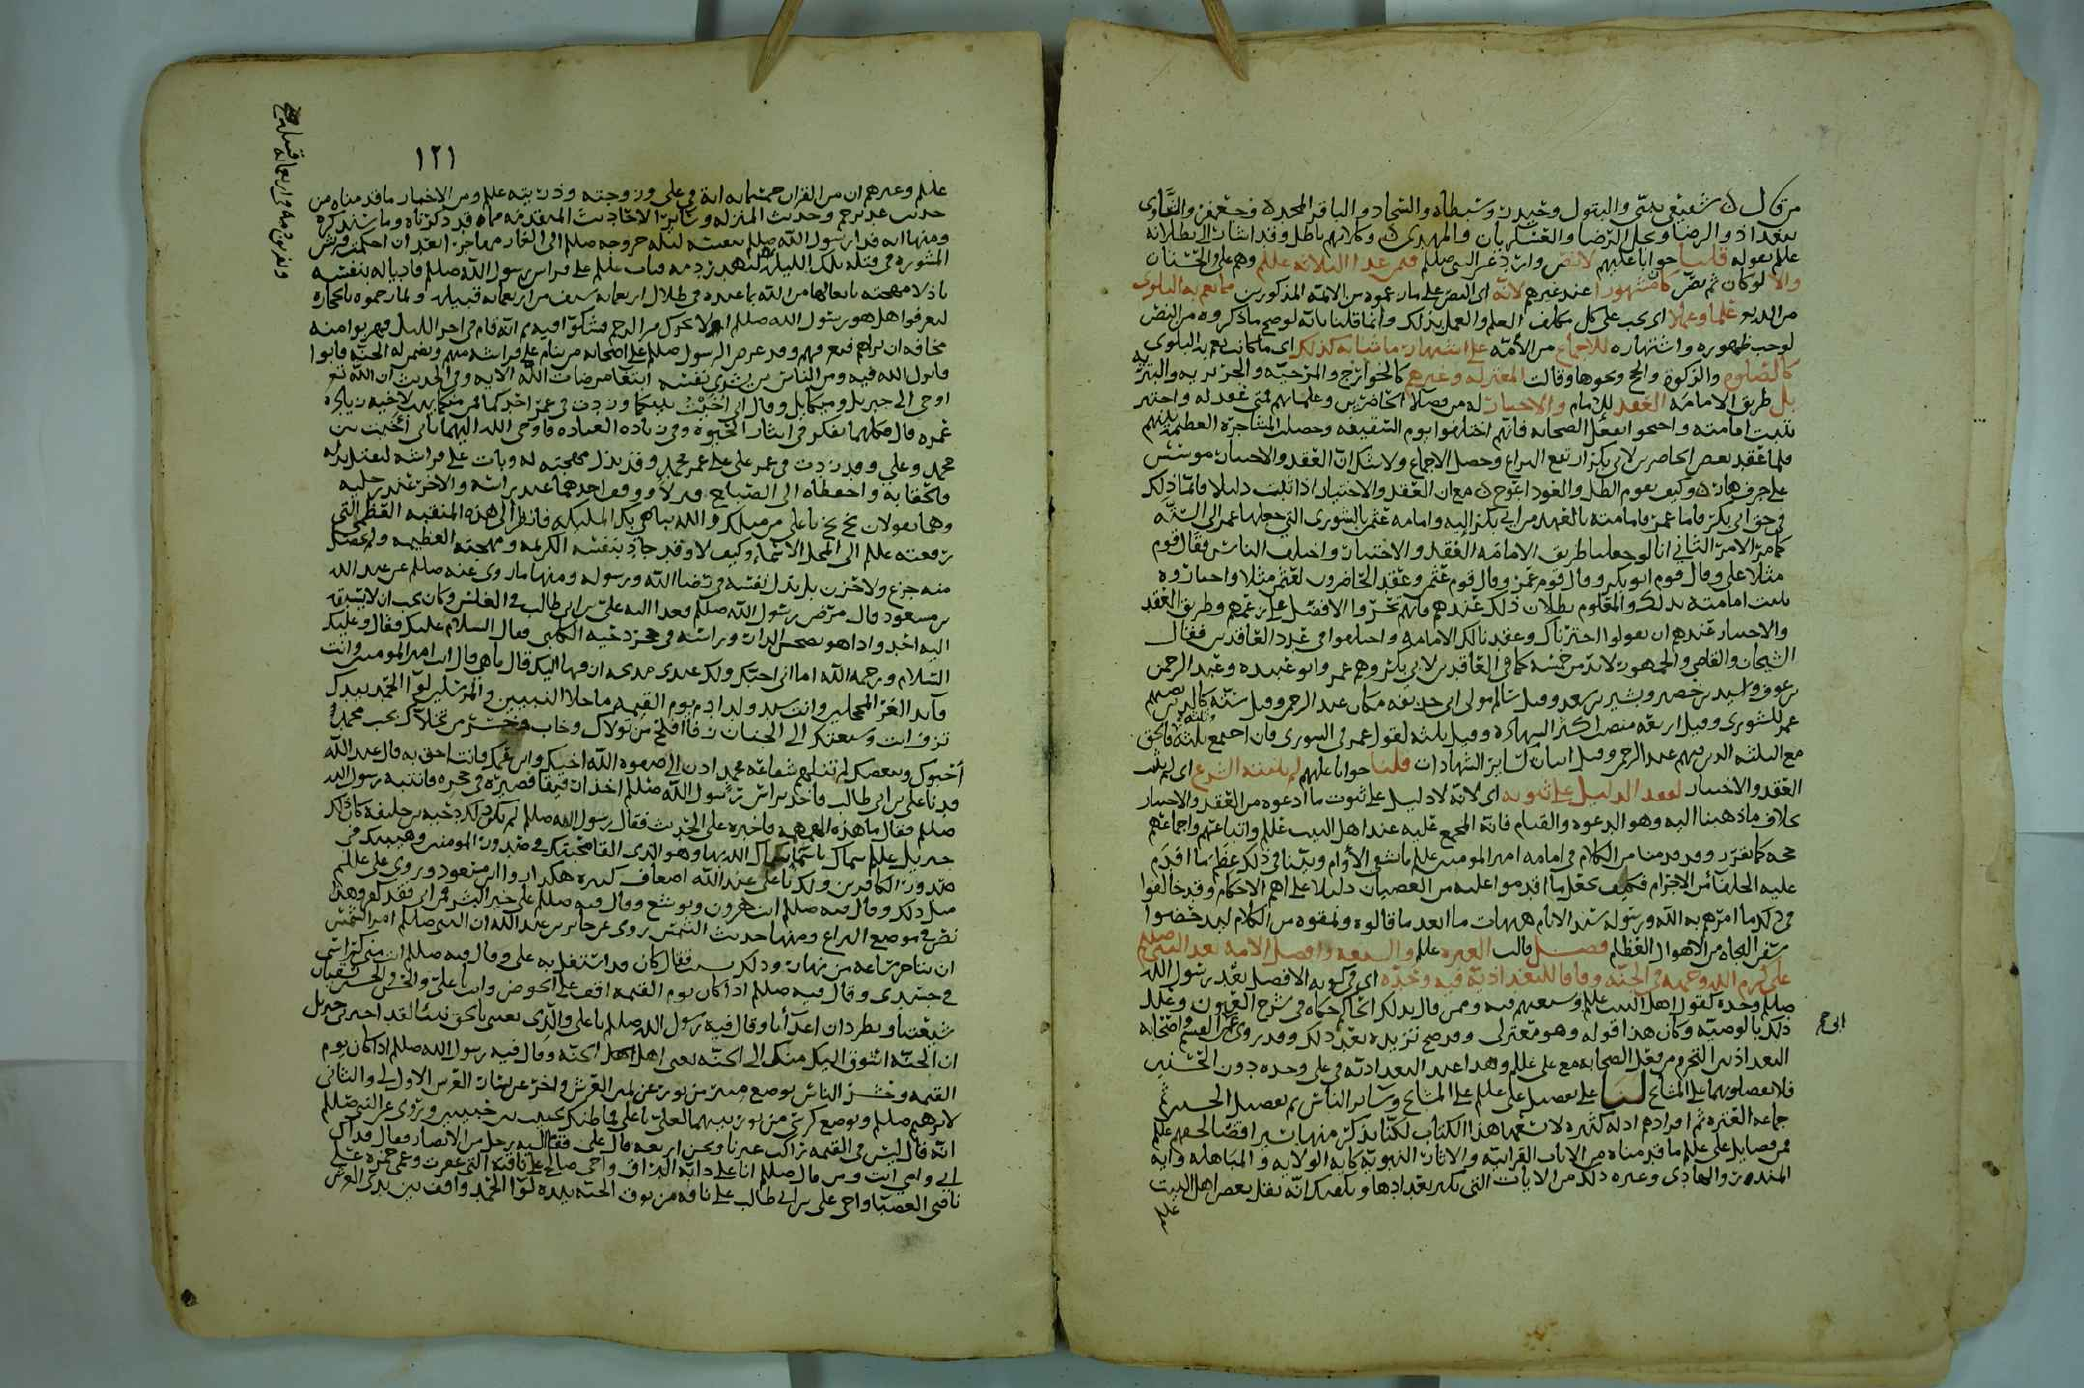 من قال ان شفيعي نبيي والبتول وحيدرة وسبطاه والسجاد والباقر المجد وجعفر والثاوي
ببغداد والرضا ونجل الرضا والعسكريان والمهدي وكلامهم باطل وقد اشار الى بطلانه
علم بقوله قلنا جوابا عليهم لا نص وارد عن النبي صلم فمن عدا الثلاثة علم وهم علي والحسنان
والا لو كان ثم نص كان مشهورا عند غيرهم لانه اي النص على ما زعموه من الائمة المذكورين مما تعم به البلوى
من الدين علما وعملا اي يجب على كل مكلف العلم والعمل بذلك وانما قلنا بانه لو صح ما ذكروه من النص
لوجب ظهوره واشتهاره للاجماع من الأمة على اشتهار ما شانه كذلك اي ما كانت تعم به البلوى
كالصلوة والزكوة والحج ونحوها وقالت المعتزلة وغيرهم كالخوارج والمرجية والجبرية والبترية
بل طريق الامامة العقد للامام والاختيار له من فضلاء الحاضرين وعلمائهم فمتى عقد له واختير
ثبتت امامته واحتجوا بفعل الصحابة فانهم اختلفوا يوم السقيفة وحصلت المشاجرة العظيمة بينهم
فلما عقد بعض الحاضرين لابي بكر ارتفع النزاع وحصل الاجماع ولا شك ان العقد والاختيار مؤسس
على جرف هار وكيف يقوم الظل والعود اعوج مع ان العقد والاختيار اذا ثبت دليلا فانما ذلك
في حق ابي بكر فاما عمر فامامته بالعهد من ابي بكر اليه وامامة عثمن بالشورى التي جعلها عمر الى الستة
كما مر الامر الثاني انا لو جعلنا طريق الامامة العقد والاختيار واختلف الناس فقال قوم
مثلا علي وقال قوم ابو بكر وقال قوم عمر وقال قوم عثمن وعقد الحاضرون لعثمن مثلا واختاروه
ثبتت امامته بذلك والمعلوم بطلان ذلك عندهم فانهم تحروا الافضل على زعمهم وطريق العقد
والاختيار عندهم ان يقولوا اخترناك وعقدنا لك الامامة واختلفوا في عدد العاقدين فقال
الشيخان والقاضي والجمهور لا بد من خمسة كما في العاقدين لابي بكر وهم عمر وابو عبيدة وعبد الرحمن
بن عوف واسيد بن حضير وبشير بن سعد وقيل سالم مولى ابي حذيفة مكان عبد الرحمن وقيل ستة كالذين نصبهم
عمر للشورى وقيل اربعة منصب اكثر الشهادة وقيل ثلثة لقول عمر في الشورى فان اجتمع ثلثة وثلثة فالحق
مع الثلثة الذين فيهم عبد الرحمن وقيل اثنان كساير الشهادات قلنا جوابا عليهم لم يثبته الشرع اي لم يثبت
العقد والاختيار لفقد الدليل على ثبوته اي لانه لا دليل على ثبوت ما ادعوه من العقد والاختيار
بخلاف ما ذهبنا اليه وهو الدعوة والقيام فانه المجمع عليه عند اهل البيت علم واتباعهم واجماعهم
حجة كما تقرر وقد قدمنا من الكلام في امامة امير المومنين علم ما شفى الأوام وبينا في ذلك عظم ما اقدم
عليه الخلفا من الاجترام فكيف يجعل ما اقدموا عليه من العصيان دليلا على اهم الاحكام وقد خالفوا
في ذلك ما امرهم به الله ورسوله سيد الانام هيهات ما ابعد ما قالوه ونمقوه من الكلام
سفن النجاة من الاهوال العظام فصل قالت العترة علم والشيعة وافضل الامة بعد النبي صلم
علي كرم الله وجهه في الجنة وفاقا للبغدادية فيه وحده اي في كونه الافضل بعد رسول الله
صلم وحده كقول اهل البيت علم وشيعتهم فيه وممن قال بذلك الحاكم حكاه في شرح العيون وعلل
ذلك بالوصية وكان هذا قوله وهو معتزلي وقد صح تزيده بعد ذلك وقد روى عن ابي القسم واصحابه
البغداذيين التحرم من فعل الصحابة مع علي علم وهذا عند البغدادية في علي وحده دون الحسنين
فلا يفضلونهما على المشائخ لنا على تفضيل علي علم على المشائخ وساير الناس ثم تفضيل الحسنين ثم
جماعة العترة ثم افرادهم ادلة كثيرة لا يتسعها هذا الكتاب لكنا نذكر منها شيرا قضا لحقهم علم
فمن فضايل علي علم ما قدمناه من الايات القرانية والاثار النبوية كاية الولاية و المباهلة واية
المنذر والهادي وغيره ذلك من الايات التي يكثر تعدادها ويكفيك انه نقل بعض اهل البيت
علم
ابي
١٢١
علم وغيرهم ان من القران خمسمايه اية في علي وزوجته وذريته علم ومن الاخبار ما قدمناه من
حديث غدير خم وحديث المنزلة وساير الاحاديث المتقدمة مما قد ذكرناه وما سنذكره
ومنها انه فدا رسول الله صلم بنفسه ليلة خروجه صلم الى الغار مهاجرا بعد ان احكمت قريش
المشورة في قتله تلك الليلة فبات علم على فراش رسول الله صلم فاديا له بنفسه
باذلا مهجته بايعا لها من الله باعبده في ظلال اربعماية سيف من اربعماية قبيلة ولما رجموه بالحجارة
ليعرفوا هل هو رسول الله صلم ام لا تحرك من الرجم فشكوا فيه ثم انه قام في اخر الليل فهربوا منه
مخافة ان يراهم فيقع فيهم وقد عرض الرسول صلم على اصحابه من ينام على فراشه منهم ويضمن له الجنة فابوا
فانزل الله فيه ومن الناس من يشري نفسه ابتغا مرضات الله الاية وفي الحديث ان الله تع
اوحى الى جبريل وميكايل وقال اني اخيت بينكما وزدت في عمر احدكما فمن منكما يهب لاخيه زيادة
عمره قال فكلاهما تفكر في ايثار الحيوة وفي زيادة العبادة فاوحى الله اليهما باني أخيت بين
محمد وعلي وقد زدت في عمر علي على عمر محمد وقد بذل مهجته له وبات على فراشه ليقتل بدله
فالحقا به واحفظاه الى الصباح فنزلا ووقف احدهما عند راسه والاخر عند رجليه
وهما يقولان بخ بخ يا علي من مثلك والله يباهي بك المليكة فانظر الى هذه المنقبة العظمى التي
رفعته علم الى المحل الاسنى وكيف لا وقد جاد بنفسه الكريمة ومهجته العظيمة ولم يحصل
منه جزع ولا حزن بل بذل نفسه في رضا الله ورسوله ومنها ما روى عنه صلم عن عبد الله
بن مسعود قال مرض رسول الله صلم فغدا اليه علي بن ابي طالب في الغلس وكان يحب ان لا يسبقه
اليه احد واذا هو بصحن الدار وراسه في حجر دحية الكلبي فقال السلام عليك فقال وعليك
السلام ورحمة الله اما اني احبك ولك عندي مديحة ازفها اليك قال ما هي قال انت امير المومنين وانت
قائد الغر المحجلين وانت سيد ولد ادم يوم القيمة ما خلا النبيين والمرسلين لوا الحمد بيدك
تزف انت وشيعتك الى الجنان زفا افلح من تولاك وخاب وخسر من تخلاك بحب محمد
أحبوك وببغضك لم تنلهم شفاعة محمد ادن الى صفوة الله اخيك وابن عمك فانت احق به قال عبد الله
فدنا علي بن ابي طالب فاخذ براس رسول الله صلم اخذا رفيقا فصيره في حجره فانتبه رسول الله
صلم فقال ما هذه الهمهمة فاخبره علي الحديث فقال رسول الله صلم لم يكن ذلك دحية بن خليفة كان ذلك
جبريل علم سماك باسماء سماك الله بها وهو الذي القى محبتك في صدور المومنين وهيبتك في
صدور الكافرين ولك يا علي عند الله اضعاف كثيرة هكذا رواه ابن مسعود وروى علي علم
مثل ذلك وقال فيه صلم انت هرون ويوشع وقال فيه صلم علي خير البشر فمن ابى فقد كفر وهذا
نص في موضع النزاع ومنها حديث الشمس روى عن جابر بن عبد الله ان النبي صلم امر الشمس
ان تتاخر ساعة من نهار وذلك فقال كان قد اشتغل به علي وقال فيه صلم ان مني كراسي
في جسدي وقال فيه صلم اذا كان يوم القيمة اقف على الحوض وانت يا علي والحسن والحسين تسقيان
شيعتنا وتطردان اعدآنا وقال فيه رسول الله صلم يا علي والذي بعثني بالحق نبيئا لقد اخبرني جبريل
ان الجنة اشوق اليك منك الى الجنة يعني اهل الجنة وقال فيه رسول الله صلم اذا كان يوم
القيمة وحشر الناس يوضع منبر من نور عن يمين العرش واخر عن يسار العرش الاول لي والثاني
لابراهيم صلم ويوضع كرسي من نور بينهما لعلي يا علي فما ظنك بحبيب بين حبيبين وروى عن النبي صلم
انه قال ليس في القيمة راكب غيرنا ونحن اربعة قال علي فقام اليه رجل من الانصار فقال فداك
ابي وامي انت ومن قال صلم انا على دابة البراق واخي صالح على ناقة الله التي عقرت وعمي حمزة على
ناقتي العضبا واخي علي بن ابي طالب على ناقة من نوق الجنة بيده لوا الحمد واقف بين يدي العرش